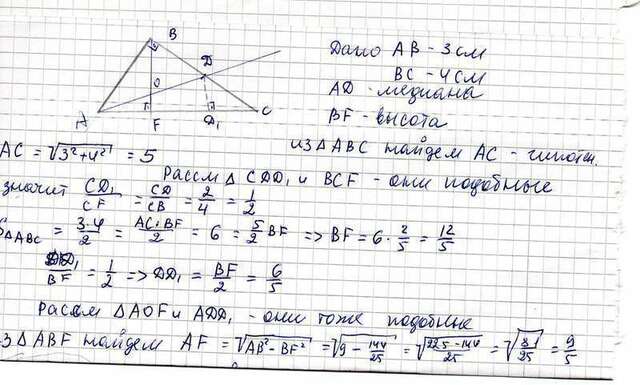 B
D
O
A
F
D₁
C
Дано AB - 3 см
BC - 4 см
AD - медиана
BF - высота
AC = √(3²+4²) = 5
из △ABC найдем AC - гипотен.
Рассм △ CDD₁ и BCF - они подобные
значит CD₁/CF = CD/CB = 2/4 = 1/2
S△ABC = 3·4/2 = AC·BF/2 = 6 = 5/2 BF ⇒ BF = 6·2/5 = 12/5
DD₁/BF = 1/2 ⇒ DD₁ = BF/2 = 6/5
Рассм △AOF и ADD₁ - они тоже подобные
из △ABF найдем AF = √(AB²-BF²) = √(9 - 144/25) = √((225-144)/25) = √(81/25) = 9/5